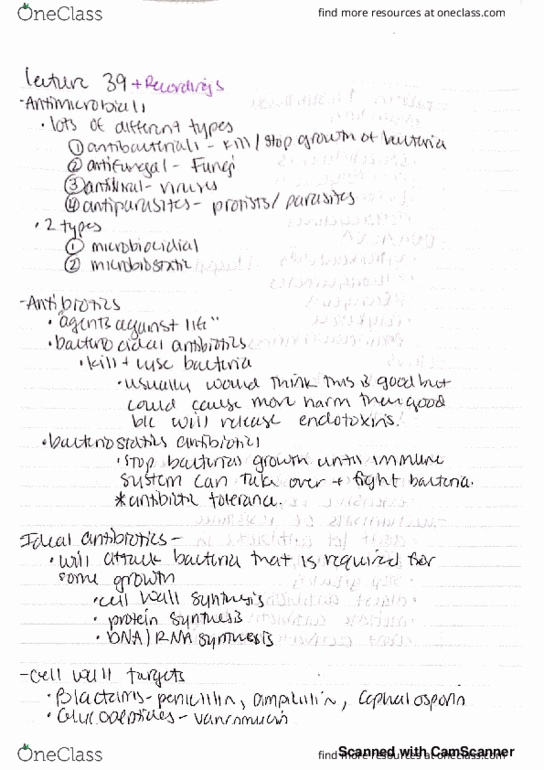 OneClass
find more resources at oneclass.com
lecture 39 + Recordings
-Antimicrobials
• lots of different types
① antibacterials - kill/stop growth of bacteria
② antifungal - Fungi
③ antiviral - viruses
④ antiparasites - protists/parasites
• 2 types
① microbiocidial
② microbiostatic
-Antibiotics
• "agents against life"
• bacterocidal antibiotics
• kill + lyse bacteria
• usually would think this is good but
could cause more harm then good
b/c will release endotoxins!
• bacteriostatics antibiotics
• stop bacterias growth until immune
system can take over + fight bacteria.
* antibiotic tolerance.
Ideal antibiotics -
• will attack bacteria that is required for
some growth
• cell wall synthesis
• protein synthesis
• DNA/RNA synthesis
-cell wall targets
• Blactams - penicillin, ampicillin, cephalosporin
• Glycopeptides - vancomycin
OneClass
find more resources at oneclass.com
Scanned with CamScanner